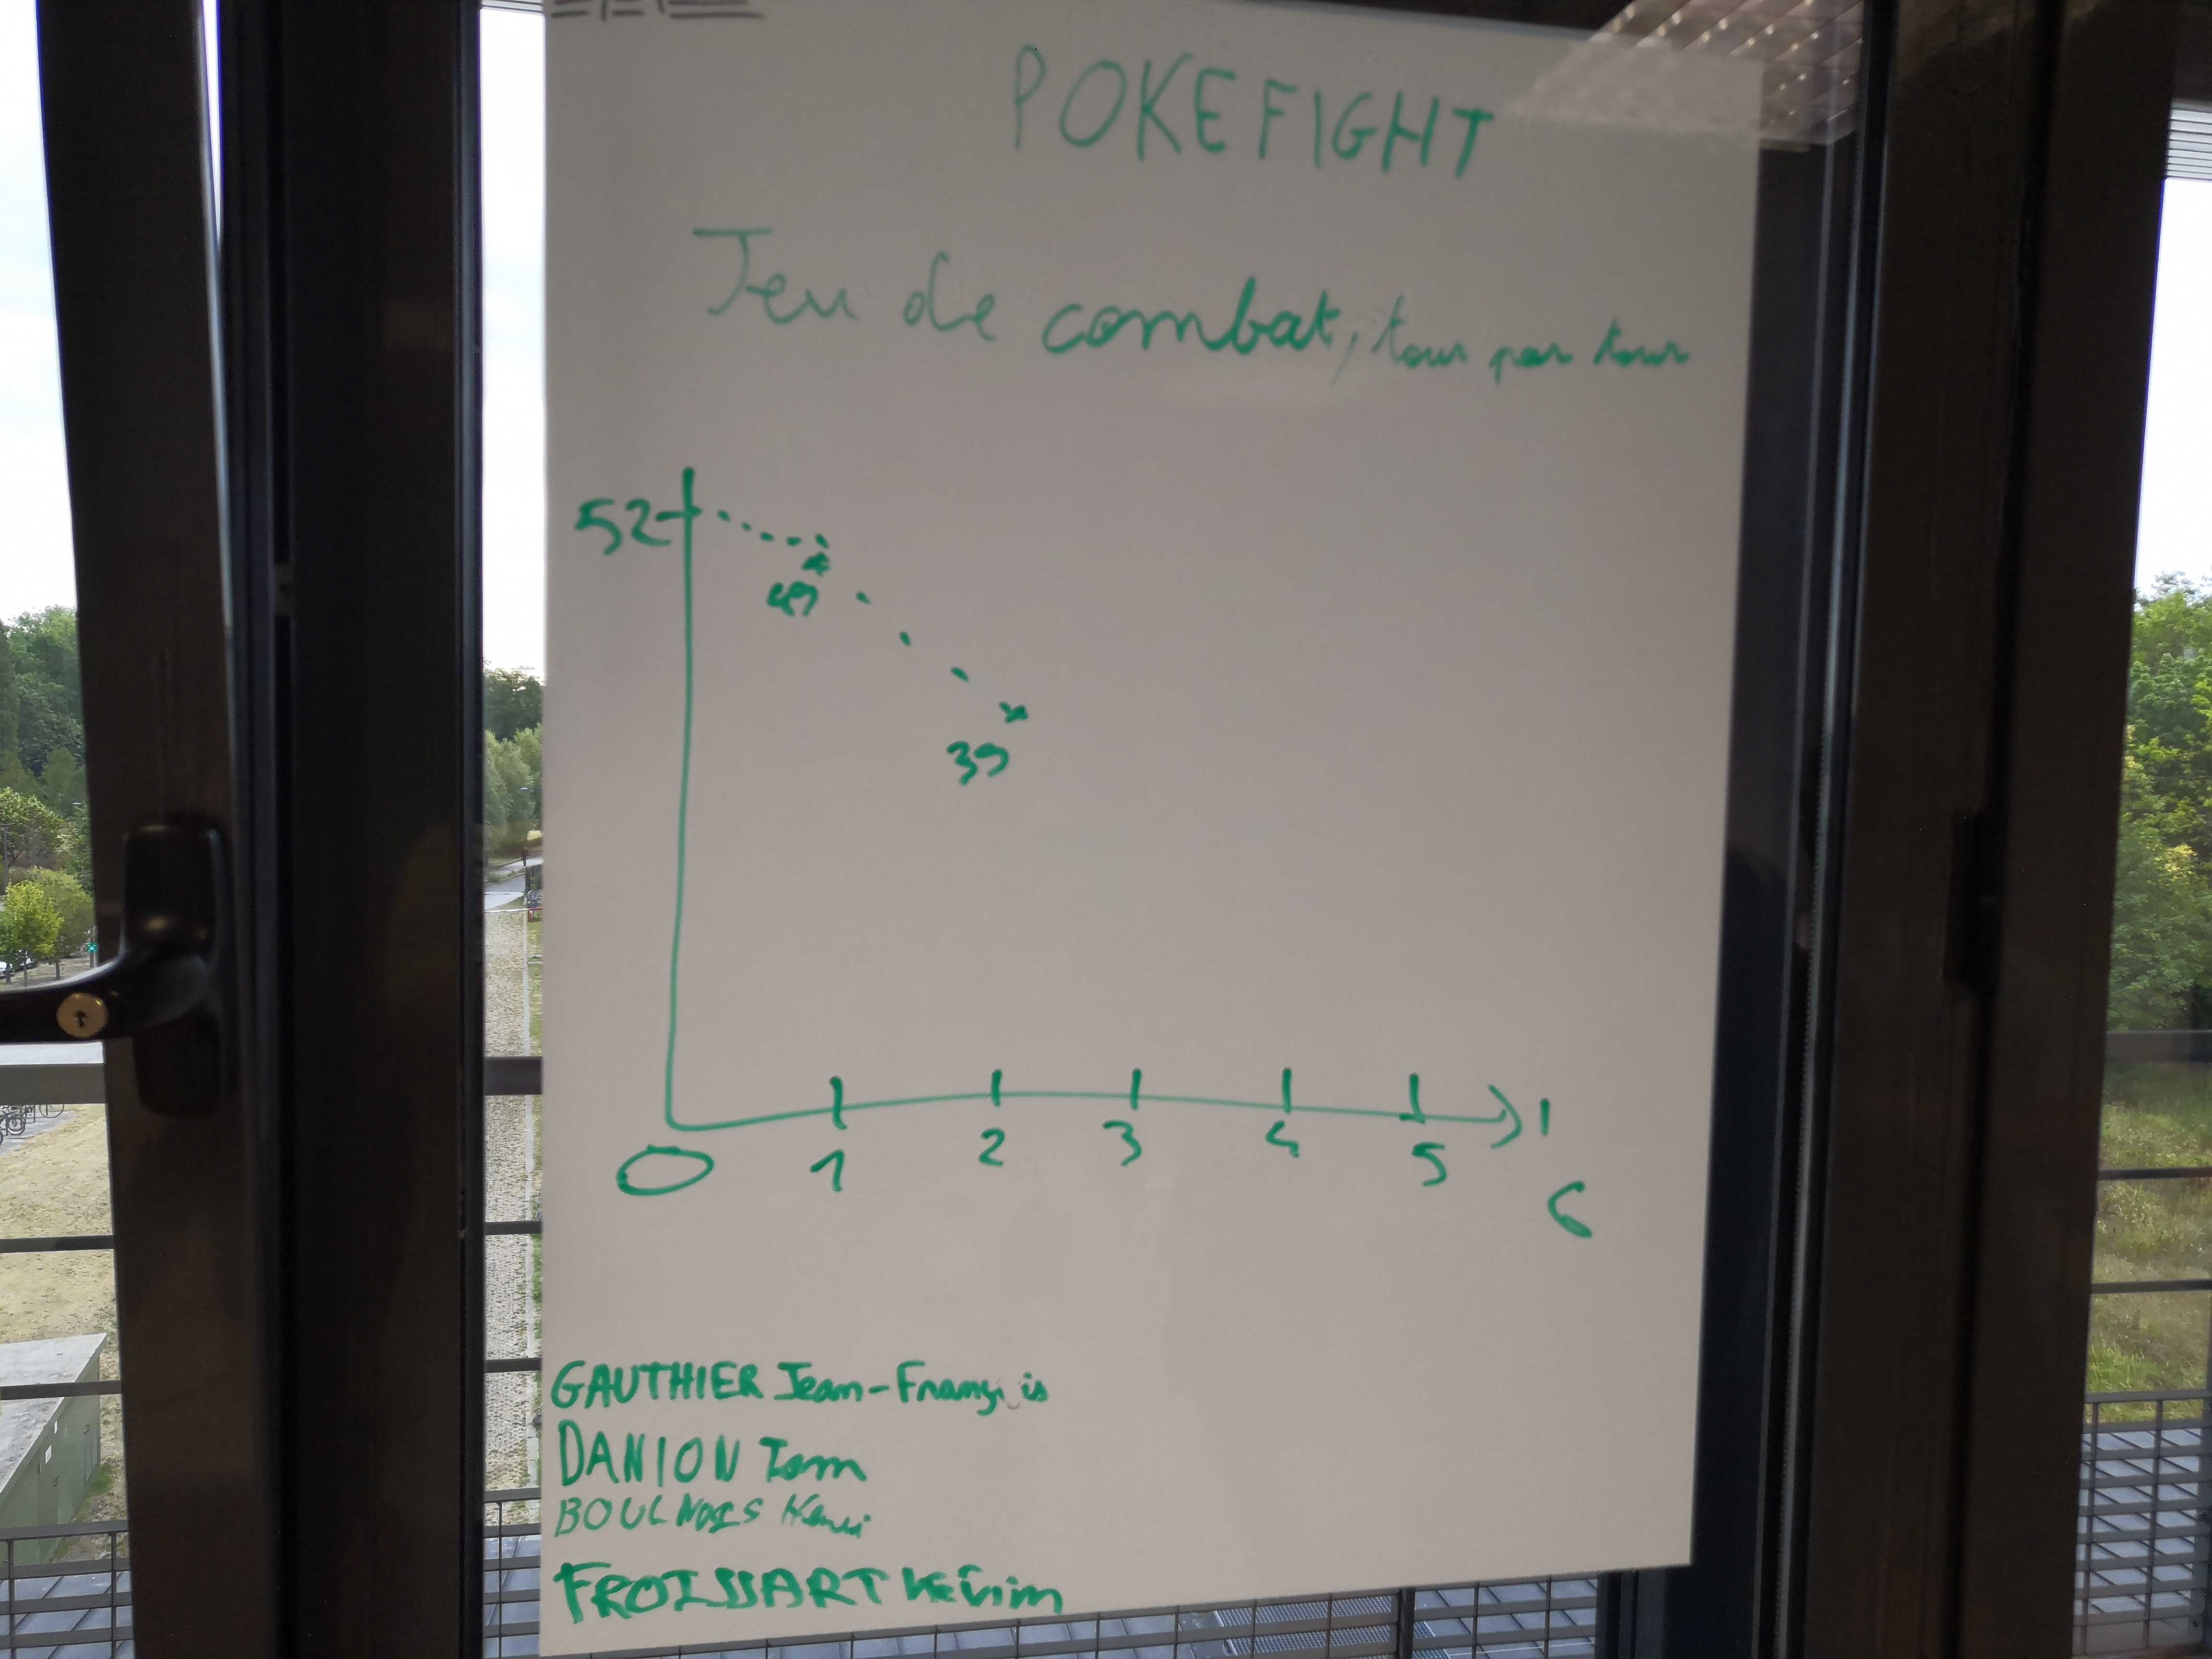 POKEFIGHT
Jeu de combat, tour par tour
52
49
39
0 1 2 3 4 5 6
GAUTHIER Jean-François
DANION Tom
BOULNOIS Henri
FROISSART Kévin